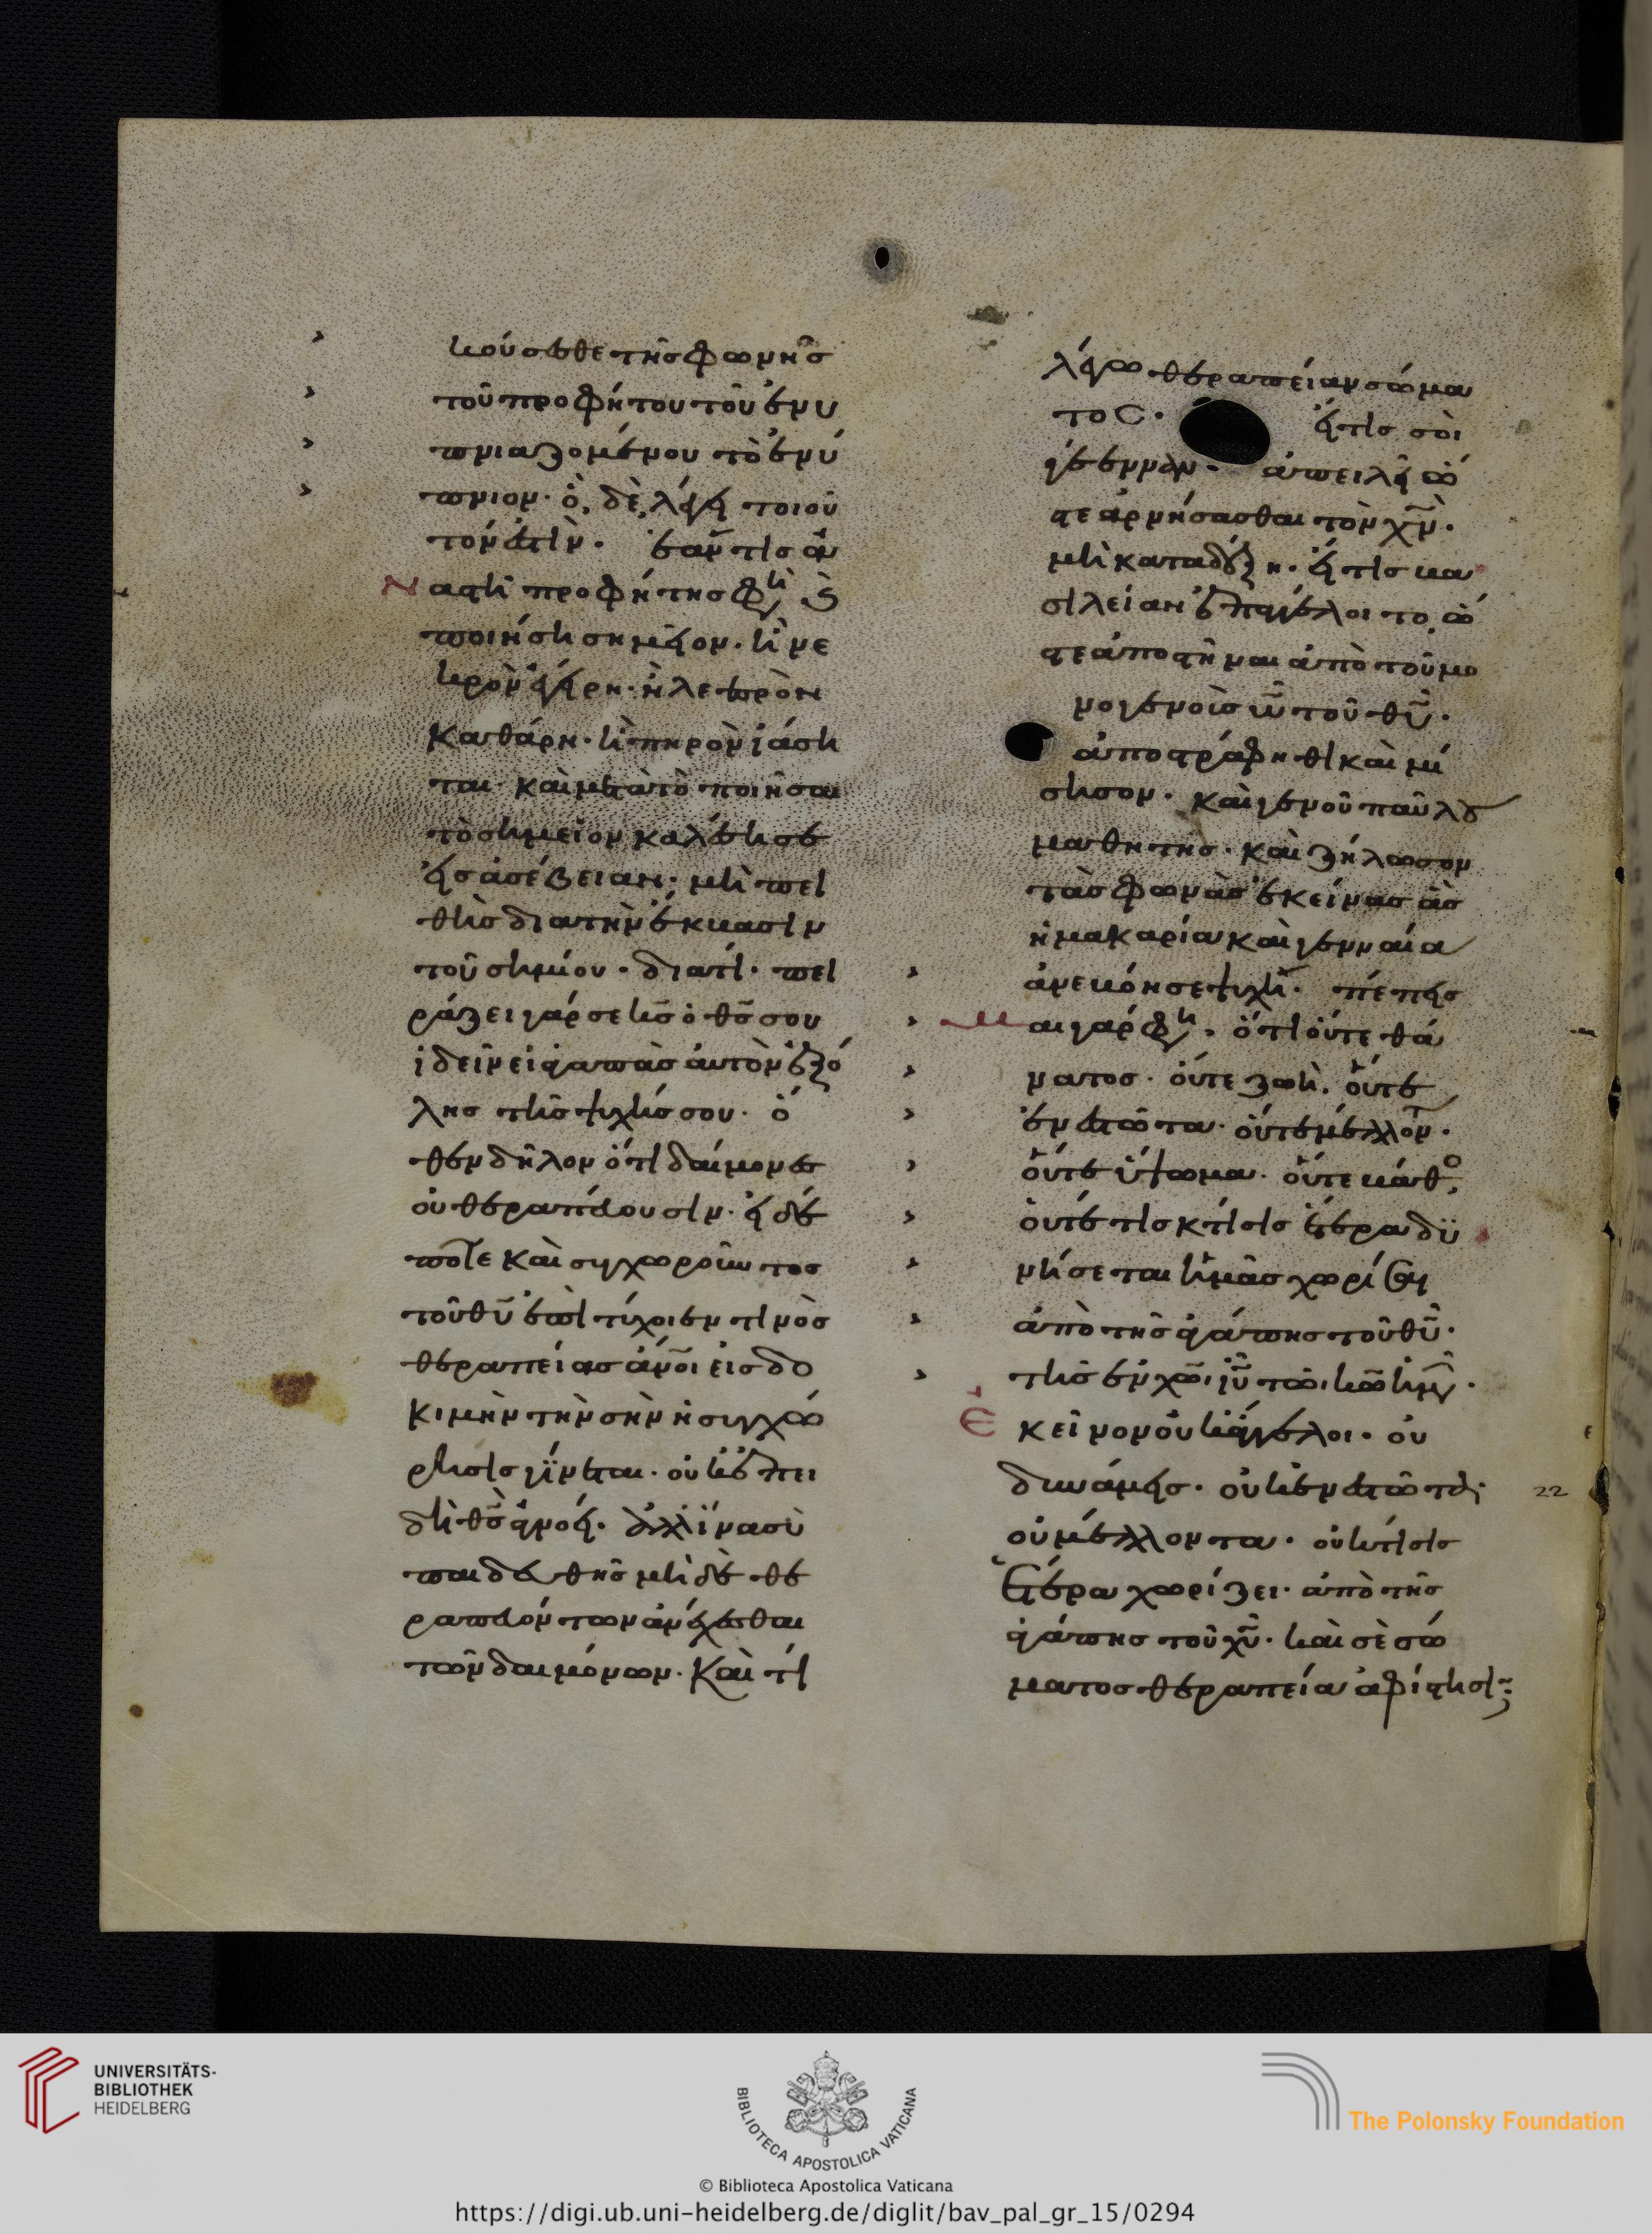 κούσεσθε τῆς φωνῆς
τοῦ προφήτου τοῦ ἐνυ
πνιαζομένου τὸ ἐνύ
πνιον· ὁ, δὲ, λέγει τοιοῦ
τόν ἐστιν· ἐάν τις ἀν
αστῆ προφήτης φη
ποιήση σημεῖον· ἢ νε
κρὸν ἐγείρη· ἢ λεπρὸν
καθάρη· ἢ πηρὸν ἰάση
ται· καὶ μετὰ τὸ ποιῆσαι
τὸ σημεῖον καλέση σε
εἰς ἀσέβειαν· μὴ πεισ
θῆς διὰ τὴν ἔκβασιν
τοῦ σημίου· διατί· πει
ράζει γάρ σε κς ὁ θς σου
ἰδεῖν εἰ ἀγαπᾶς αὐτὸν ἐξ ὅ
λης τῆς ψυχῆς σου· ὅ
θεν δῆλον ὅτι δαίμονες
οὐ θεραπεύουσιν· εἰ δέ
ποτε καὶ συγχωροῦντος
τοῦ θυ ἐπιτύχοιέν τινος
θεραπείας ἄνοι εἰς δο
κιμὴν τὴν σὴν ἡ συγχώ
ρησις γίνεται· οὐκ ἐπει
δὴ θς ἀγνοεῖ· ἀλλ' ἵνα σὺ
παιδευθῆς μηδὲ θε
ραπευόντων ἀνέχεσθαι
τῶν δαιμόνων· Καὶ τί
λέγω θεραπείαν σώμα
τος· εἴ τις σοι
γέενναν· ἀπειλεῖ ὥσ
τε ἀρνήσασθαι τὸν χν·
μὴ καταδέξη· εἴ τις βα
σιλείαν ἐπαγγέλοιτο, ὥσ
τε ἀποστῆναι ἀπὸ τοῦ μο
νογενοῦς υυ τοῦ θυ·
ἀποστράφηθι καὶ μί
σησον· καὶ γενοῦ παύλου
μαθητὴς· καὶ ζήλωσον
τὰς φωνὰς ἐκείνας ἃς
ἡ μακαρία καὶ γενναία
ἀνεβόησε ψυχή· πέπεισ
μαι γάρ φη· ὅτι οὔτε θά
νατος· οὔτε ζωὴ· οὔτε
ἐνεστῶτα· οὔτε μέλλον·
οὔτε ὕψωμα· οὔτε βάθο,
οὔτέ τις κτίσις ἑτέρα δυ
νήσεται ἡμᾶς χωρίσαι
ἀπὸ τῆς ἀγάπης τοῦ θυ·
τῆς ἐν χω ιυ τῶ κω ἡμῶν·
Ἐκεῖνον οὐκ ἄγγέλοι· οὐ
δυνάμεις· οὐκ ἐνεστῶτα·
οὐ μέλλοντα· οὐ κτίσις
ἑτέρα χωρίζει· ἀπὸ τῆς
ἀγάπης τοῦ χυ· καὶ σὲ σώ
ματος θεραπεία ἀφίστησι;
22
UNIVERSITÄTS-
BIBLIOTHEK
HEIDELBERG
BIBLIOTECA APOSTOLICA VATICANA
The Polonsky Foundation
© Biblioteca Apostolica Vaticana
https://digi.ub.uni-heidelberg.de/diglit/bav_pal_gr_15/0294